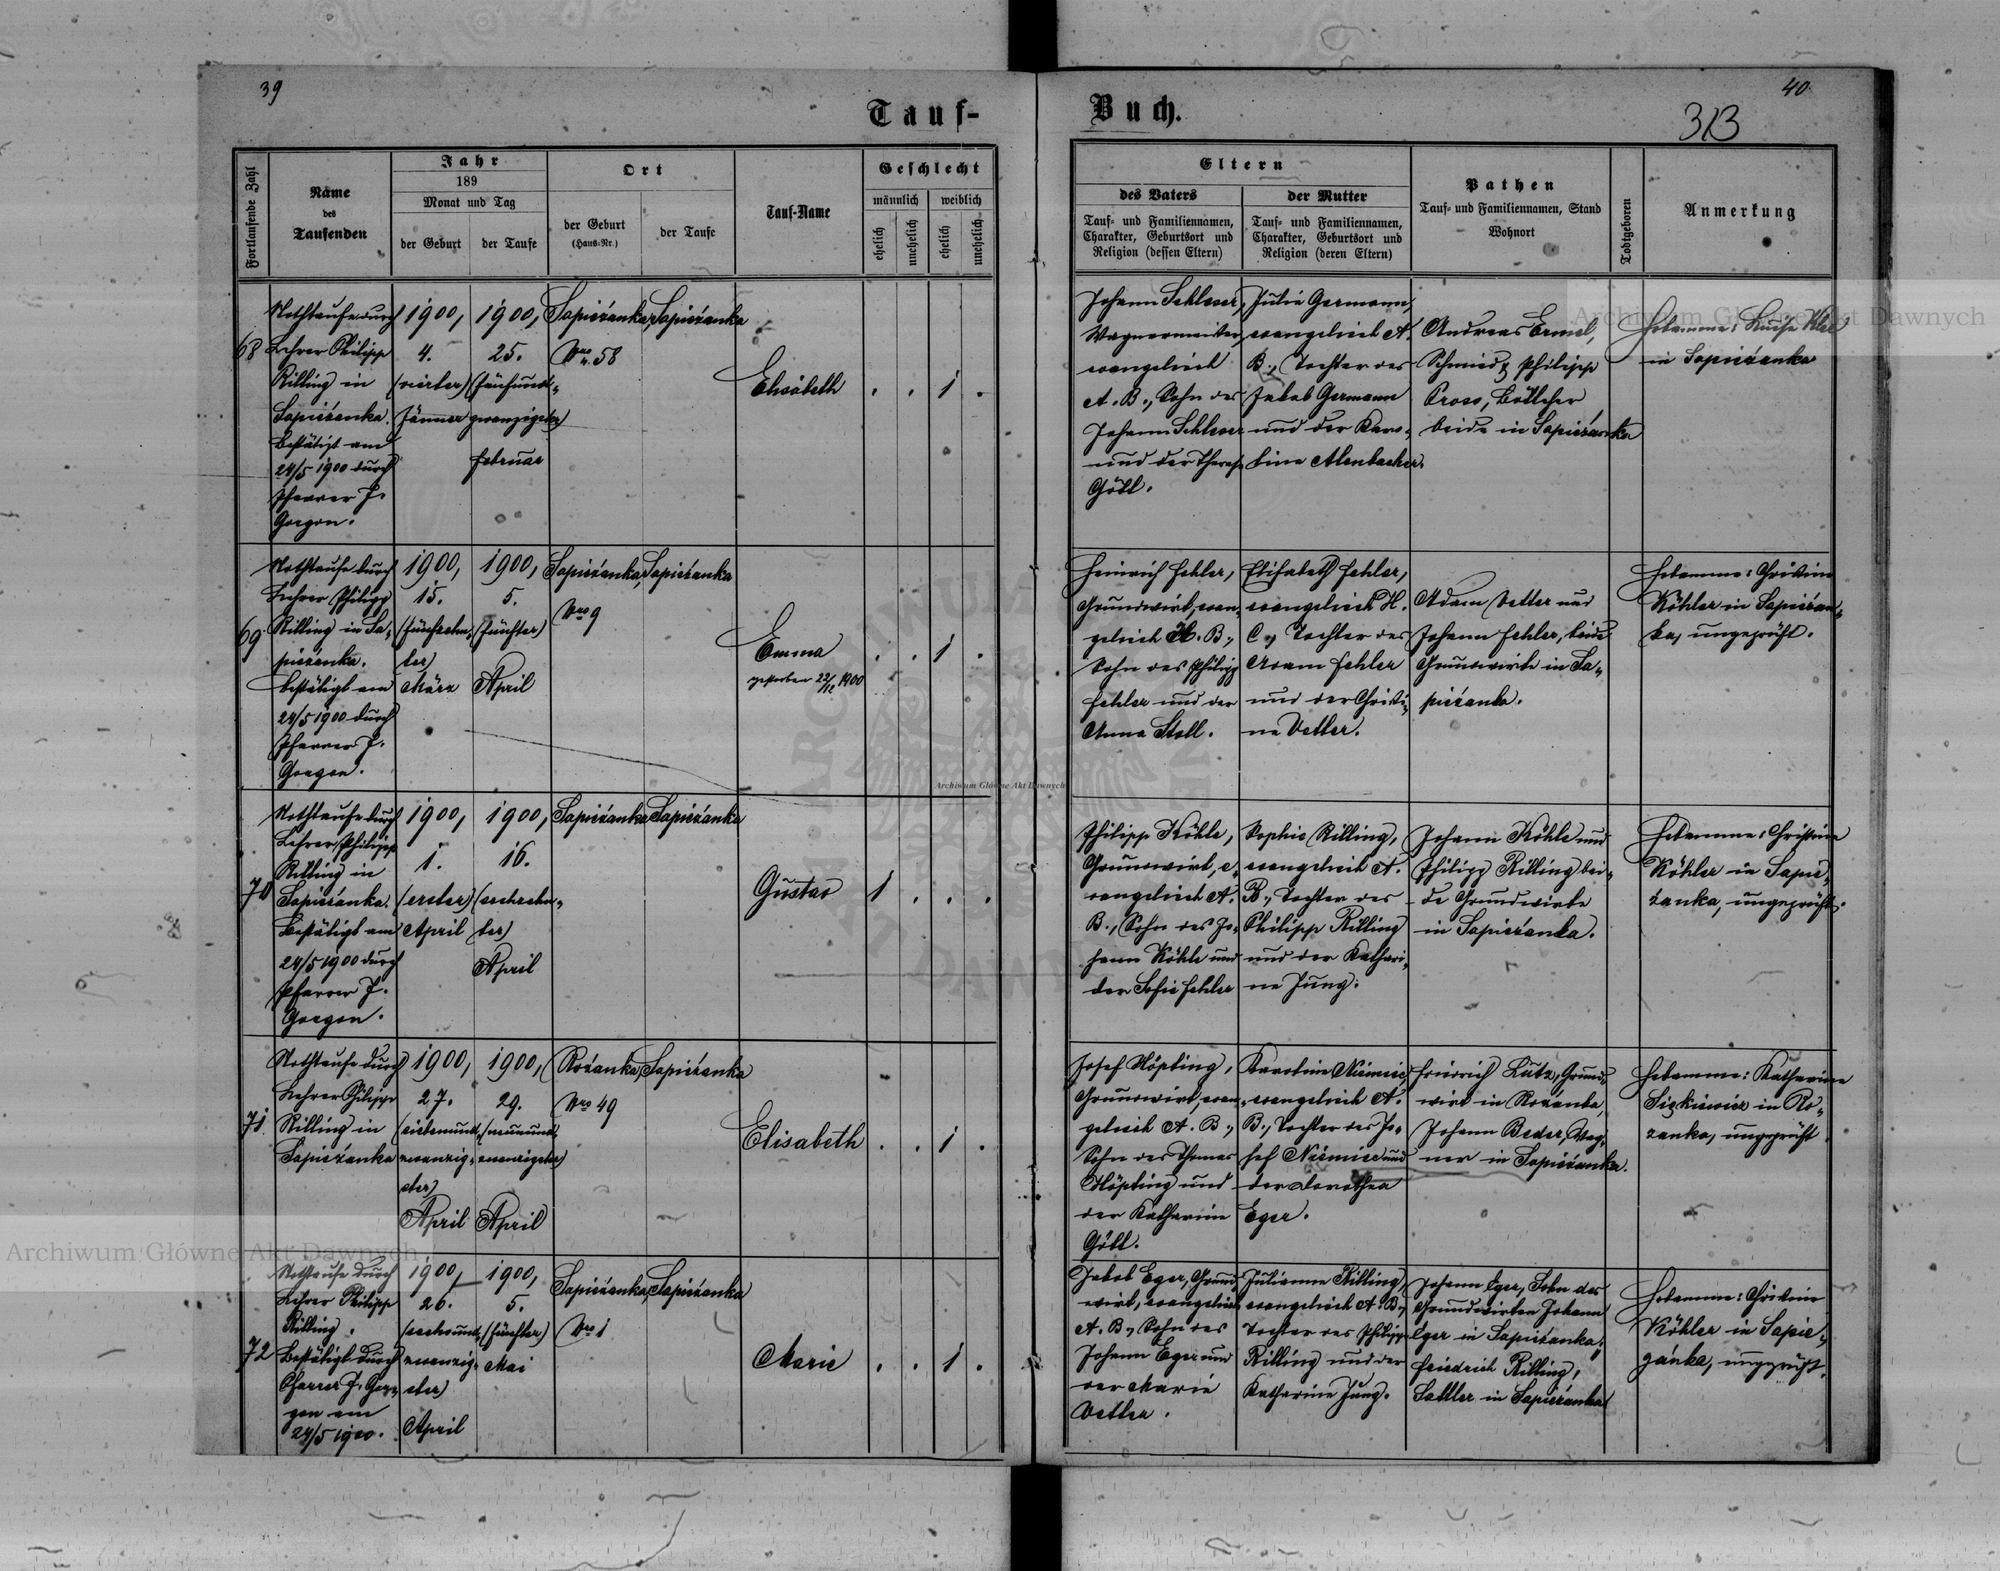 39
40
313
Tauf-
Buch.
Fortlaufende Zahl
Name
des
Taufenden
Jahr
189
Monat und Tag
der Geburt
der Taufe
Ort
der Geburt
(Haus-Nr.)
der Taufe
Tauf-Name
Geschlecht
männlich
weiblich
ehelich
unehelich
ehelich
unehelich
Eltern
des Vaters
Tauf- und Familiennamen,
Charakter, Geburtsort und
Religion (dessen Eltern)
der Mutter
Tauf- und Familiennamen,
Charakter, Geburtsort und
Religion (deren Eltern)
Pathen
Tauf- und Familiennamen, Stand
Wohnort
Todtgeboren
Anmerkung
68
Nothtaufe durch
Lehrer Philipp
Rilling in
Sapieżanka.
Bestätigt am
24/5 1900 durch
Pfarrer J.
Gorgon.
1900,
4.
(vierter)
Jänner
1900,
25.
(fünfund-
zwanzigster)
Februar
Sapieżanka,
Nro. 58
Sapieżanka
Elisabeth
. . 1 .
Johann
Wagnermeister,
evangelisch
A. B., Sohn des
Johann
und der
Göbl.
Julie Germann,
evangelisch A.
B., Tochter des
Jakob Germann
und der Karo-
line
Andreas Ermel,
Schmied, Philipp
Pross, Böttcher
beide in Sapieżanka
Hebamme:
in Sapieżanka
69
Nothtaufe durch
Lehrer Philipp
Rilling in Sa-
pieżanka.
Bestätigt am
24/5 1900 durch
Pfarrer J.
Gorgon.
1900,
15.
(fünfzehn-
ter)
März
1900,
5.
(fünfter)
April
Sapieżanka,
Nro 9
Sapieżanka
Emma
gestorben 22/12 1900
. . 1 .
Heinrich Fehler,
Grundwirt, evan-
gelisch H. B.,
Sohn des Philipp
Fehler und der
Anna Stoll.
Elisabeth Fehler,
evangelisch H.
C., Tochter des
Adam Fehler
und der Christi-
ne Vetter.
Adam Vetter und
Johann Fehler, beide
Grundwirte in Sa-
pieżanka.
Hebamme: Christine
Köhler in Sapieżan-
ka, ungeprüft.
70
Nothtaufe durch
Lehrer Philipp
Rilling in
Sapieżanka.
Bestätigt am
24/5 1900 durch
Pfarrer J.
Gorgon.
1900,
1.
(erster)
April
1900,
16.
(sechzehn-
ter)
April
Sapieżanka
Sapieżanka
Gustav
1 . . .
Philipp Köhle,
Grundwirt, e-
vangelisch A.
B., Sohn des Jo-
hann Köhle und
der Sofie Fehler
Sophie Rilling,
evangelisch A.
B., Tochter des
Philipp Rilling
und der Kathari-
ne Jung.
Johann Köhle und
Philipp Rilling bei-
de Grundwirte
in Sapieżanka.
Hebamme: Christine
Köhler in Sapie-
żanka, ungeprüft.
71
Nothtaufe durch
Lehrer Philipp
Rilling in
Sapieżanka
1900,
27.
(siebenund-
zwanzig-
ster)
April
1900,
29.
(neunund-
zwanzigster)
April
Rożanka,
Nro 49
Sapieżanka
Elisabeth
. . 1 .
Josef Höpting,
Grundwirt, evan-
gelisch A. B.,
Sohn des Thomas
Höpting und
der Katharine
Göbl.
Karoline Niemise,
evangelisch A.
B., Tochter des Jo-
sef Niemise und
der Dorothea
Eger.
Friedrich Lutz, Grund-
wirt in Rożanka,
Johann Beder, Wag-
ner in Sapieżanka.
Hebamme: Katharine
in Ro-
zanka, ungeprüft
72
Nothtaufe durch
Lehrer Philipp
Rilling.
Bestätigt durch
Pfarrer J. Gor-
gon am
24/5 1900.
1900,
26.
(sechsund-
zwanzig-
ster)
April
1900,
5.
(fünfter)
Mai
Sapieżanka,
Nro 1
Sapieżanka
Marie
. . 1 .
Jakob Eger, Grund-
wirt, evangelisch
A. B., Sohn des
Johann Eger und
der Marie
Vetter.
Julianne Rilling,
evangelisch A. B.,
Tochter des Philipp
Rilling und der
Katharine Jung.
Johann Eger, Sohn des
Grundwirten Johann
Eger in Sapieżanka,
Friedrich Rilling,
Sattler in Sapieżanka
Hebamme: Christine
Köhler in Sapie-
żanka, ungeprüft.
Archiwum Główne Akt Dawnych
Archiwum Główne Akt Dawnych
Archiwum Główne Akt Dawnych